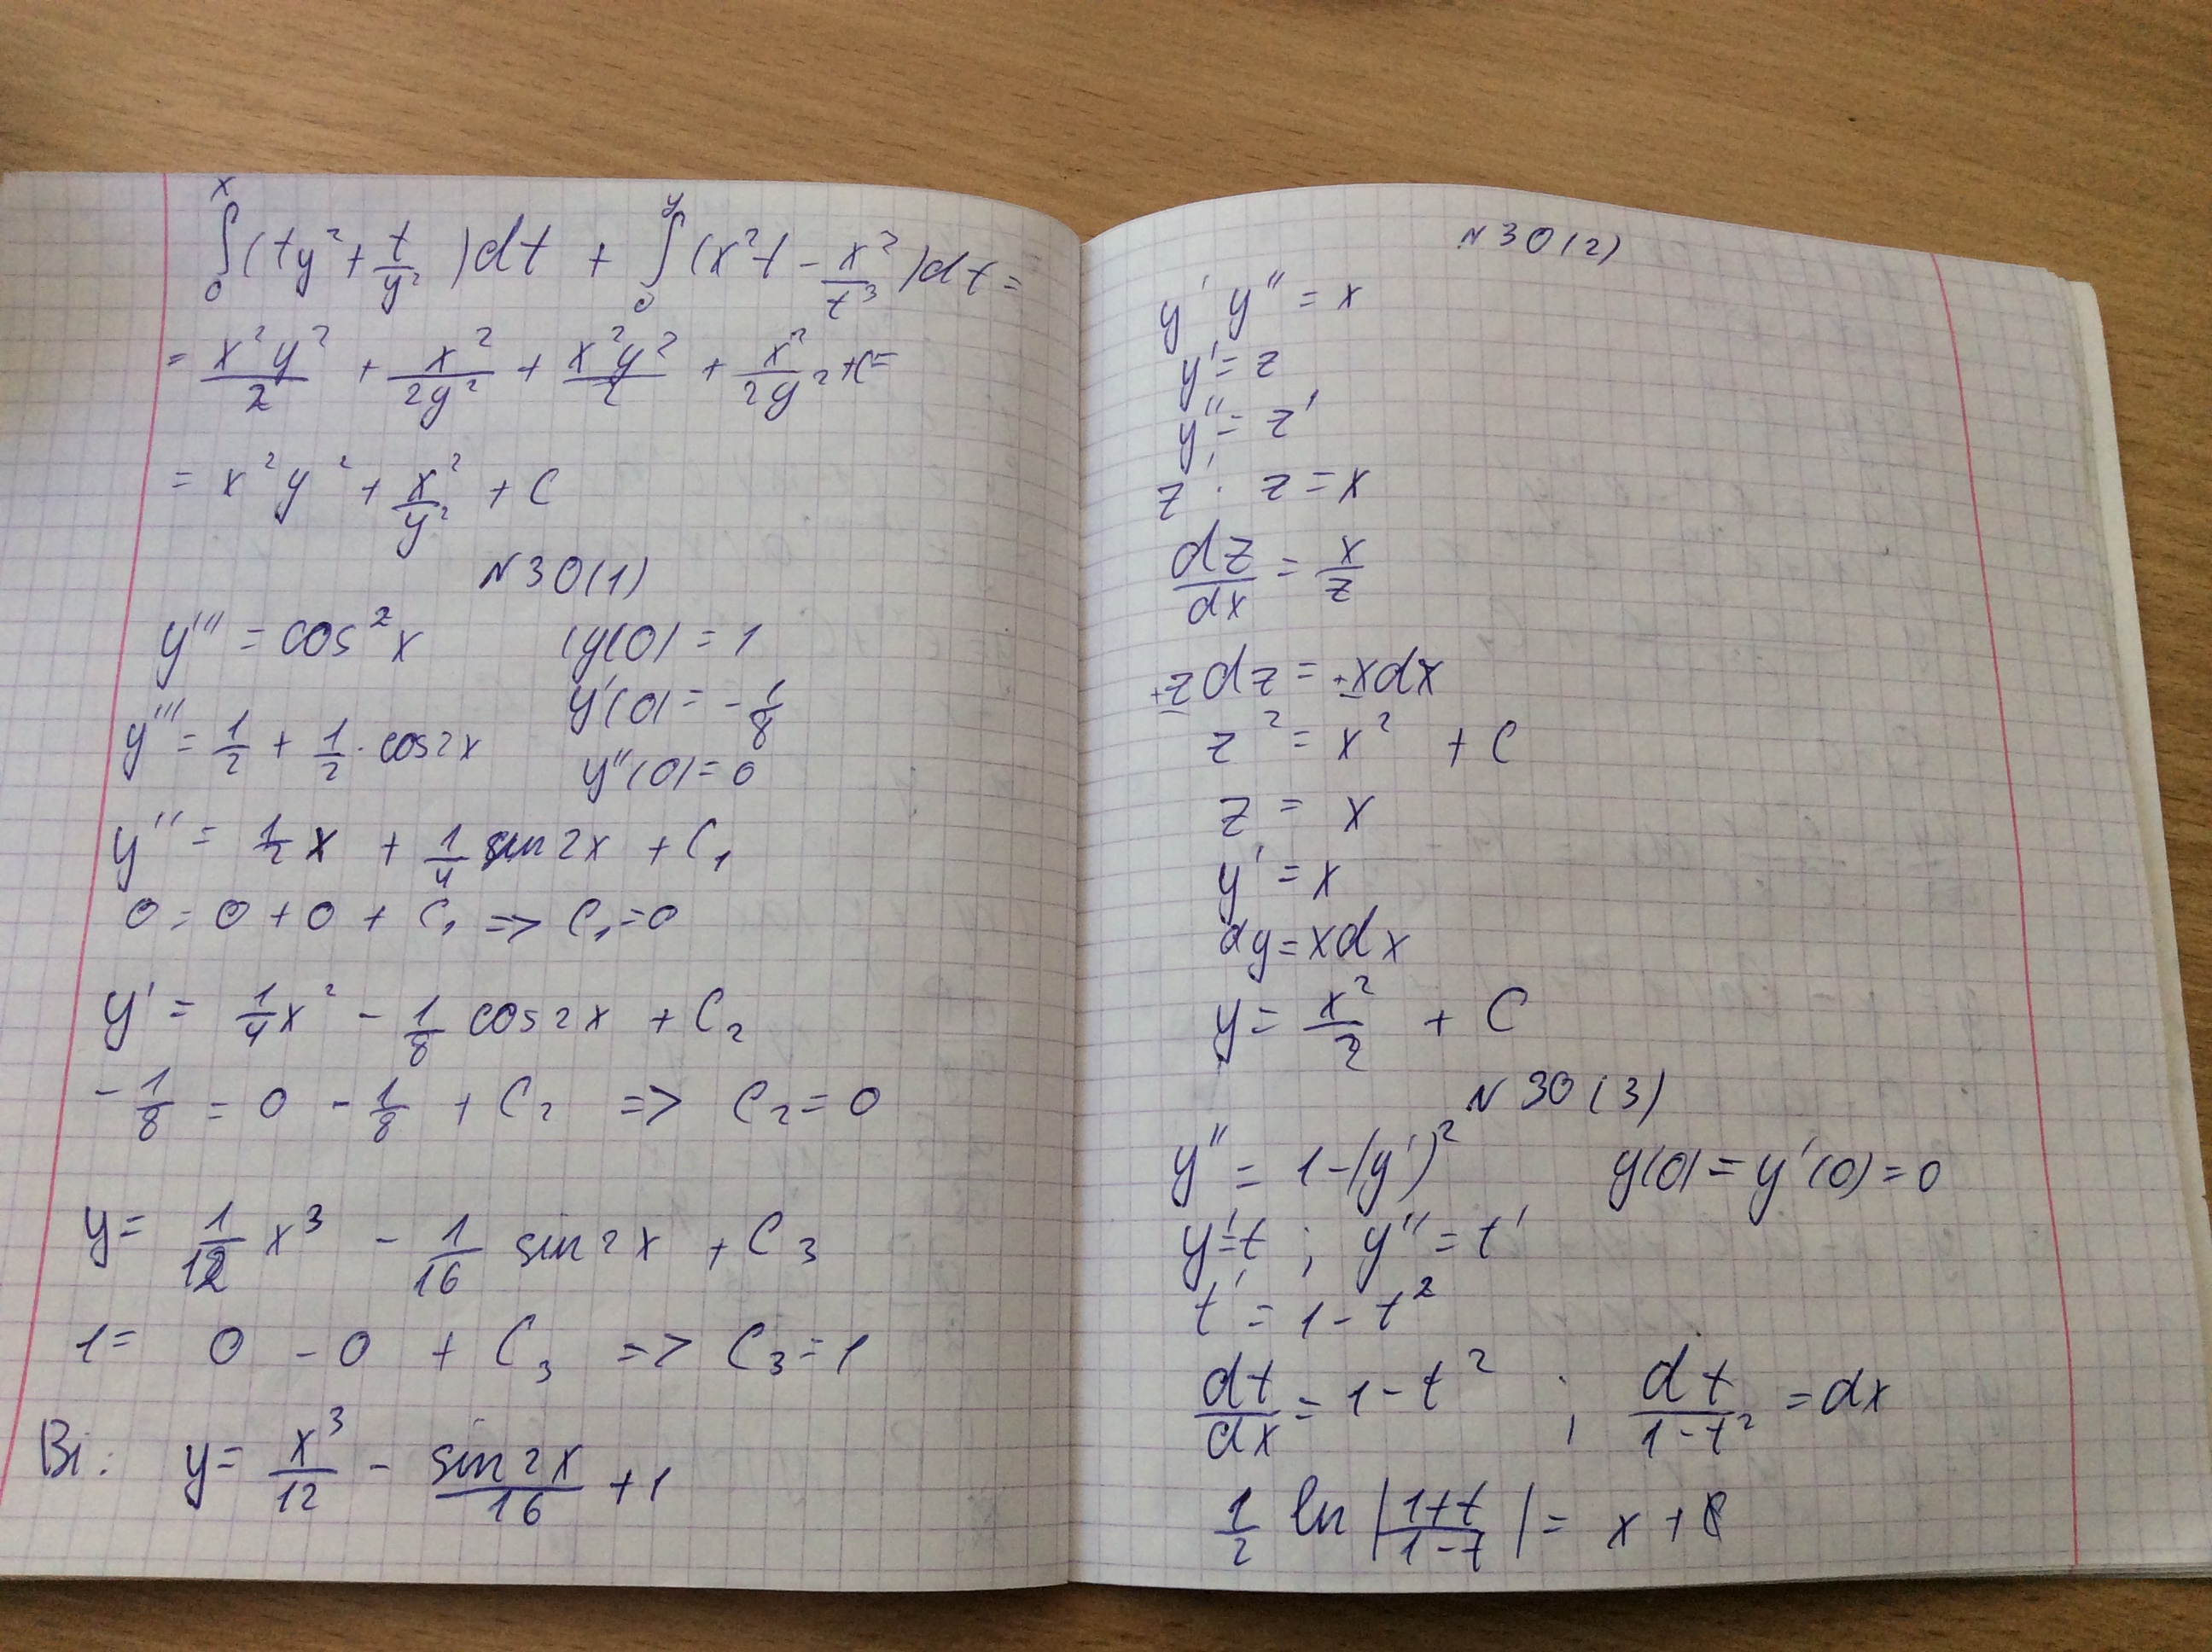 ∫₀ˣ (ty² + t/y²)dt + ∫₀ʸ (x²t - x²/t³)dt =
= x²y²/2 + x²/2y² + x²y²/2 + x²/2y² + C =
= x²y² + x²/y² + C
N30(1)
y''' = cos²x (y(0) = 1
y'(0) = -1/8
y''' = 1/2 + 1/2 · cos2x
y''(0) = 0
y'' = 1/2 x + 1/4 sin2x + C₁
0 = 0 + 0 + C₁ => C₁ = 0
y' = 1/4 x² - 1/8 cos2x + C₂
-1/8 = 0 - 1/8 + C₂ => C₂ = 0
y = 1/12 x³ - 1/16 sin2x + C₃
1 = 0 - 0 + C₃ => C₃ = 1
Ві: y = x³/12 - sin2x/16 + 1
N30(2)
y' y'' = x
y' = z
y'' = z'
z' · z = x
dz/dx = x/z
+zdz = +xdx
z² = x² + C
z = x
y' = x
dy = xdx
y = x²/2 + C
N30(3)
y'' = 1-(y')² y(0) = y'(0) = 0
y' = t ; y'' = t'
t' = 1 - t²
dt/dx = 1 - t² ; dt/1-t² = dx
1/2 ln |1+t/1-t| = x + C